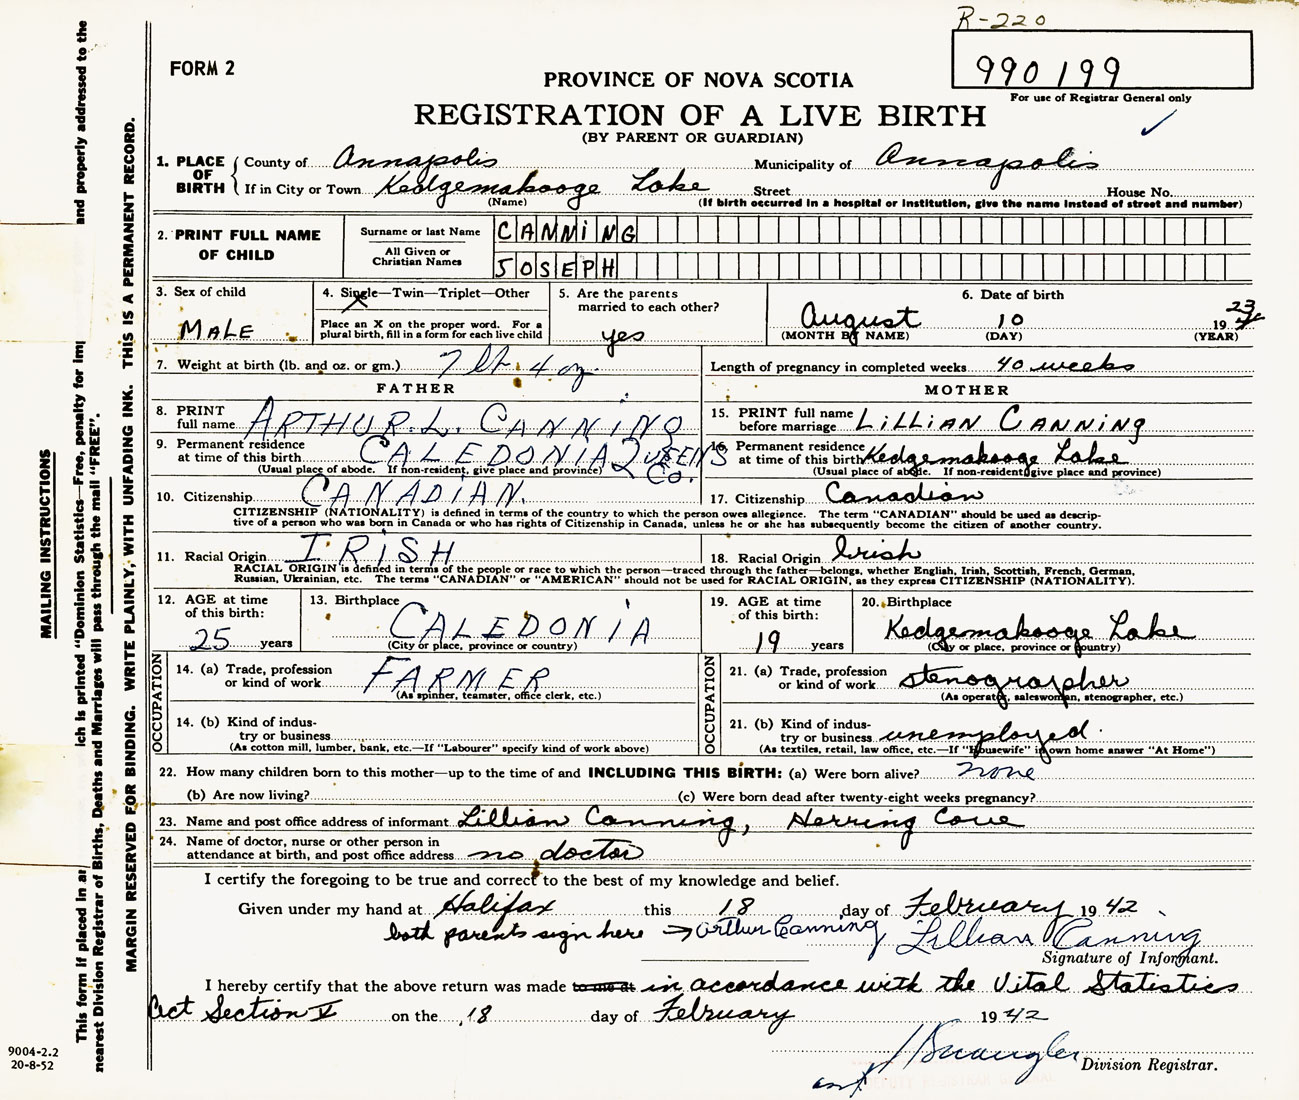 R-220
990199
For use of Registrar General only
FORM 2
PROVINCE OF NOVA SCOTIA
REGISTRATION OF A LIVE BIRTH
(BY PARENT OR GUARDIAN)
1. PLACE OF BIRTH { County of Annapolis Municipality of Annapolis
If in City or Town Kedgemakooge Lake Street House No.
(Name) (If birth occurred in a hospital or institution, give the name instead of street and number)
2. PRINT FULL NAME OF CHILD
Surname or last Name CANNiNG
All Given or Christian Names JOSEPH
3. Sex of child MALE
4. Single—Twin—Triplet—Other X
Place an X on the proper word. For a plural birth, fill in a form for each live child
5. Are the parents married to each other? yes
6. Date of birth
August 10 19 23
(MONTH BY NAME) (DAY) (YEAR)
7. Weight at birth (lb. and oz. or gm.) 7 lb. 4 oz. Length of pregnancy in completed weeks 40 weeks
FATHER
8. PRINT full name ARTHUR. L. CANNiNG
9. Permanent residence at time of this birth CALEDONIA QUEENS Co.
(Usual place of abode. If non-resident, give place and province)
10. Citizenship CANADIAN.
MOTHER
15. PRINT full name before marriage LiLLiAN CANNiNg
16. Permanent residence at time of this birth Kedgemakooge Lake
(Usual place of abode. If non-resident, give place and province)
17. Citizenship Canadian
CITIZENSHIP (NATIONALITY) is defined in terms of the country to which the person owes allegiance. The term "CANADIAN" should be used as descrip-
tive of a person who was born in Canada or who has rights of Citizenship in Canada, unless he or she has subsequently become the citizen of another country.
11. Racial Origin IRiSH 18. Racial Origin Irish
RACIAL ORIGIN is defined in terms of the people or race to which the person—traced through the father—belongs, whether English, Irish, Scottish, French, German,
Russian, Ukrainian, etc. The terms "CANADIAN" or "AMERICAN" should not be used for RACIAL ORIGIN, as they express CITIZENSHIP (NATIONALITY).
12. AGE at time of this birth: 25 years
13. Birthplace CALEDONIA
(City or place, province or country)
19. AGE at time of this birth: 19 years
20. Birthplace Kedgemakooge Lake
(City or place, province or country)
OCCUPATION
14. (a) Trade, profession or kind of work FARMER
(As spinner, teamster, office clerk, etc.)
14. (b) Kind of indus-
try or business
(As cotton mill, lumber, bank, etc.—If "Labourer" specify kind of work above)
OCCUPATION
21. (a) Trade, profession or kind of work stenographer
(As operator, saleswoman, stenographer, etc.)
21. (b) Kind of indus-
try or business unemployed.
(As textiles, retail, law office, etc.—If "Housewife" in own home answer "At Home")
22. How many children born to this mother—up to the time of and INCLUDING THIS BIRTH: (a) Were born alive? none
(b) Are now living? (c) Were born dead after twenty-eight weeks pregnancy?
23. Name and post office address of informant Lillian Canning, Herring Cove
24. Name of doctor, nurse or other person in
attendance at birth, and post office address no doctor
I certify the foregoing to be true and correct to the best of my knowledge and belief.
Given under my hand at Halifax this 18 day of February 19 42
both parents sign here → Arthur Canning Lillian Canning
Signature of Informant.
I hereby certify that the above return was made to me at in accordance with the Vital Statistics
Act Section V on the 18 day of February 19 42
Division Registrar.
9004-2.2
20-8-52
MAILING INSTRUCTIONS
This form if placed in an
ich is printed "Dominion Statistics—Free, penalty for im
and properly addressed to the
nearest Division Registrar of Births, Deaths and Marriages will pass through the mail "FREE".
MARGIN RESERVED FOR BINDING. WRITE PLAINLY, WITH UNFADING INK. THIS IS A PERMANENT RECORD.